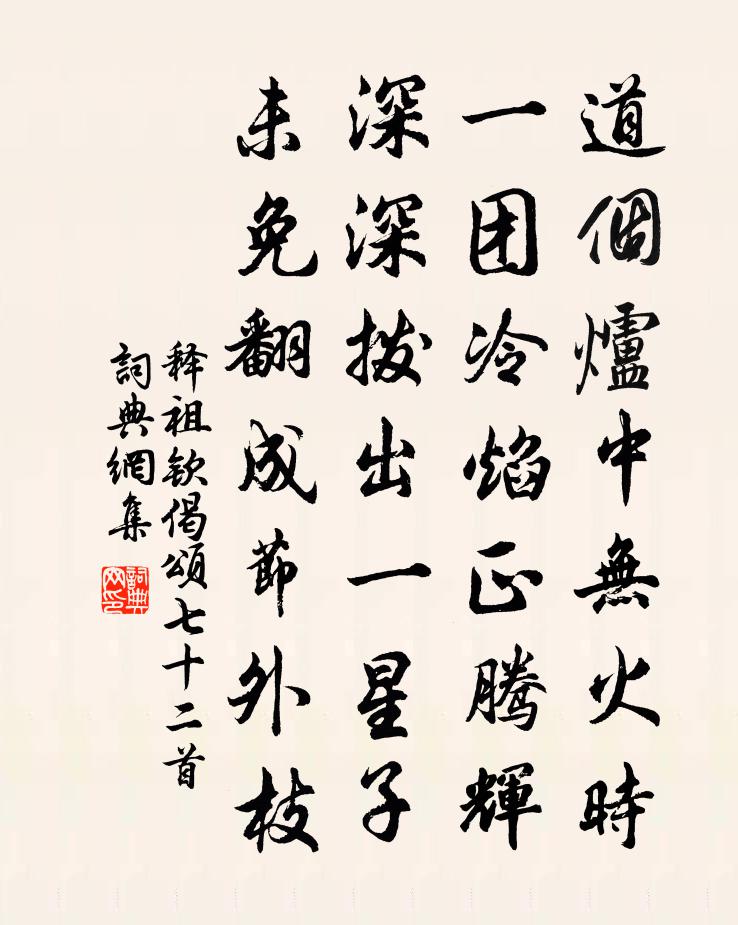 道個爐中無火時
一团冷焰正騰輝
深深拨出一星子
未免翻成節外枝
释祖钦偈頌七十二首
詞典網集
詞典網印